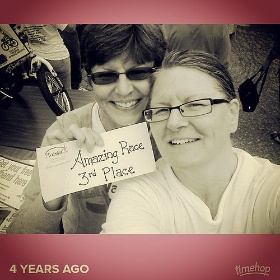 Amazing Race
3rd Place
4 YEARS AGO
timehop